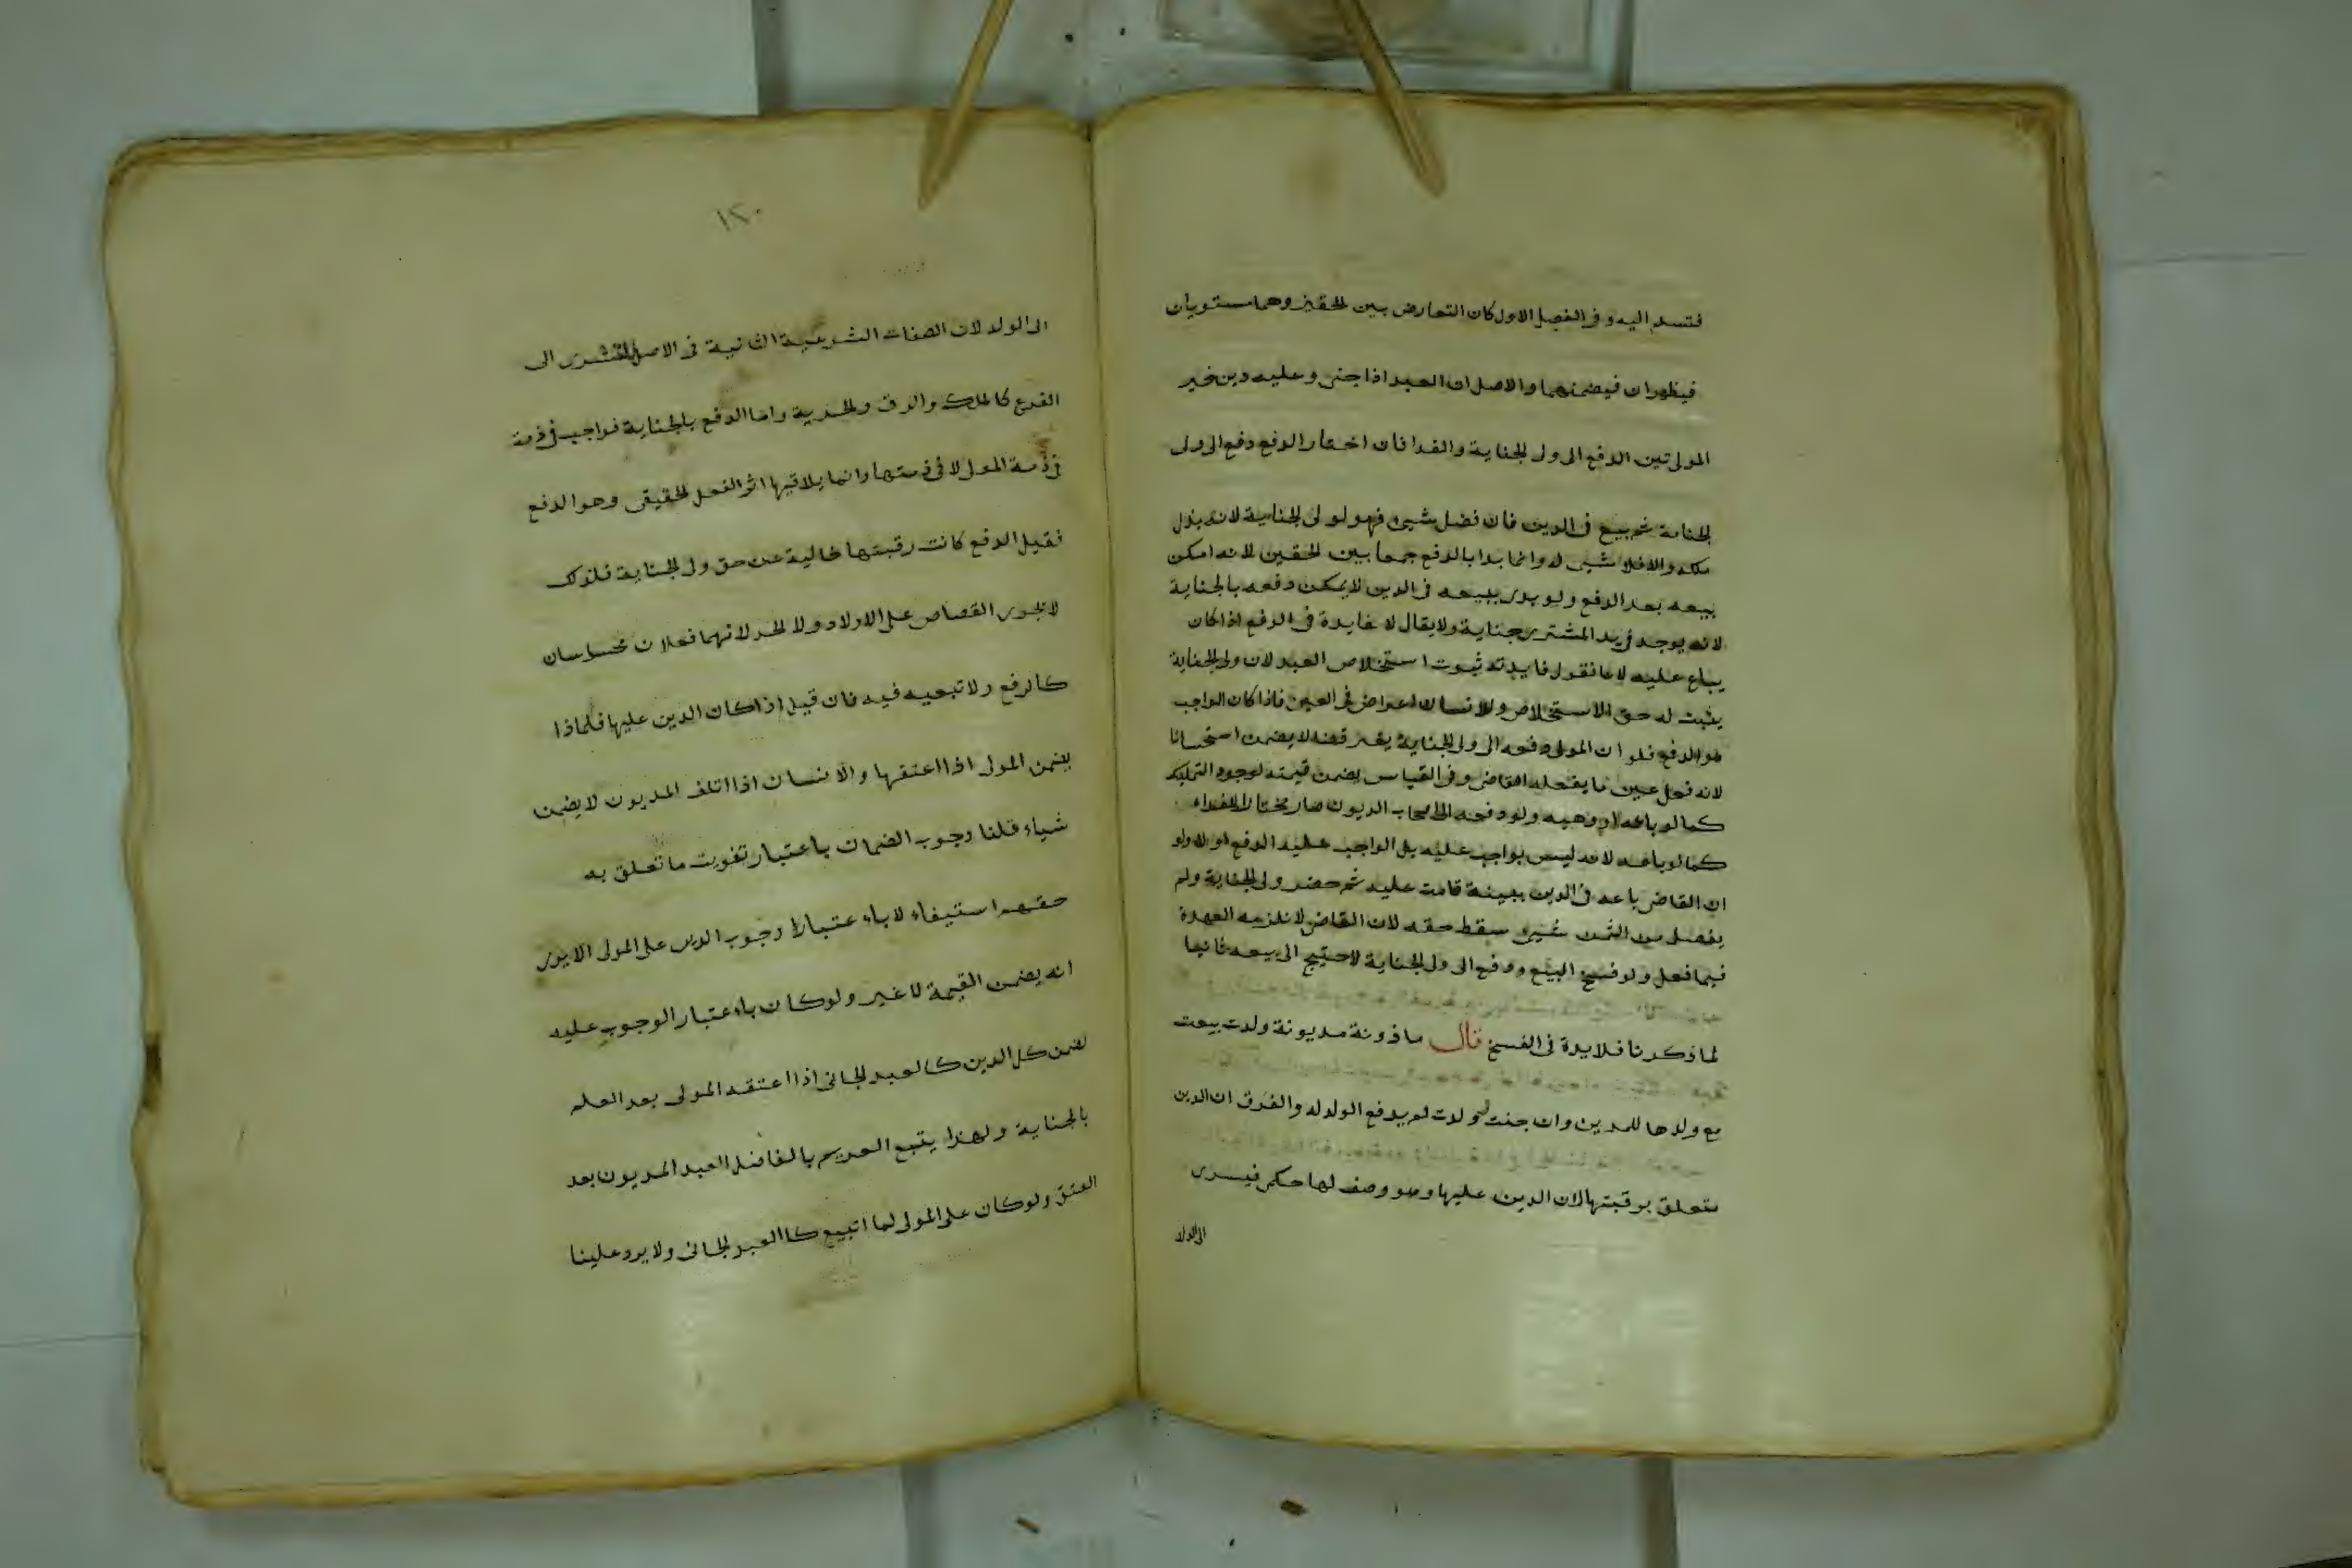 فتسلم اليه وفى الفصل الاول كان التعارض بين الحقين وهما مستويان
فيظهران فيضمنهما والاصل ان العبد اذا جنى وعليه دين خير
المولى بين الدفع الى ولى الجناية والفدا فان اختار الدفع دفع الى ولى
الجناية ثم بيع فى الدين فان فضل شيئ فهو لولى الجناية لانه بذل
ملكه والا فلا شيئ له وانما بدا بالدفع جمعا بين الحقين لانه امكن
بيعه بعد الدفع ولو بدى ببيعه فى الدين لا يمكن دفعه بالجناية
لانه يوجد فى يد المشترى جناية ولا يقال لا فايدة فى الدفع اذا كان
يباع عليه لانا نقول فايدته ثبوت استخلاص العبد لان ولى الجناية
يثبت له حق الاستخلاص وللانسان اعراض فى العين فاذا كان الواجب
هو الدفع فلو ان المولى دفعه الى ولى الجناية بغير قضه لا يضمن استحسانا
لانه فعل عين ما يفعله القاضى وفى القياس يضمن قيمته لوجود التمليك
كما لو باعه او وهبه ولو دفعه الى اصحاب الديون صار مختارا للفداء
كما لو باعه لانه ليس بواجب عليه بل الواجب عليه الدفع اولا ولو
ان القاضى باعه فى الدين ببينة قامت عليه ثم حضر ولى الجناية ولم
يفضل من الثمن شيئ سقط حقه لان القاضى لا تلزمه العهدة
فيما فعل ولو فسخ البيع ودفع الى ولى الجناية لاحتيج الى بيعه ثانيا
لما ذكرنا فلا يدة فى الفسخ قال ماذونة مديونة ولدت بيعت
مع ولدها للدين وان جنت فولدت لم يدفع الولد له والفرق ان الدين
متعلق برقبتها لان الدين عليها وهو وصف لها حكمى فيسرى
الى الولد
١٢٠
الى الولد لان الصفات الشرعية الثانية فى الاصل تسرى الى
الفرع كالملك والرق والحرية واما الدفع بالجناية فواجب فى ذمة
فى ذمة المولى لا فى ذمتها وانما يلاقيها اثر الفعل الحقيقى وهو الدفع
فقبل الدفع كانت رقبتها خالية عن حق ولى الجناية فلذلك
لا يجرى القصاص على الاولاد ولا الحد لانهما فعلان محسوسان
كالدفع ولا تبعيه فيه فان قيل اذا كان الدين عليها فلماذا
يضمن المولى اذا اعتقها والانسان اذا اتلف المديون لا يضمن
شياء قلنا وجوب الضمان باعتبار تفويت ما تعلق به
حقهم استيفاء لا باء عتبار وجوب الدين على المولى الا يرى
انه يضمن القيمة لا غير ولو كان باء عتبار الوجوب عليه
لضمن كل الدين كالعبد الجانى اذا اعتقه المولى بعد العلم
بالجناية ولهذا يتبع الغريم بالفاضل العبد المديون بعد
العتق ولو كان على المولى لما اتبيع كالعبد الجانى ولا يرد علينا